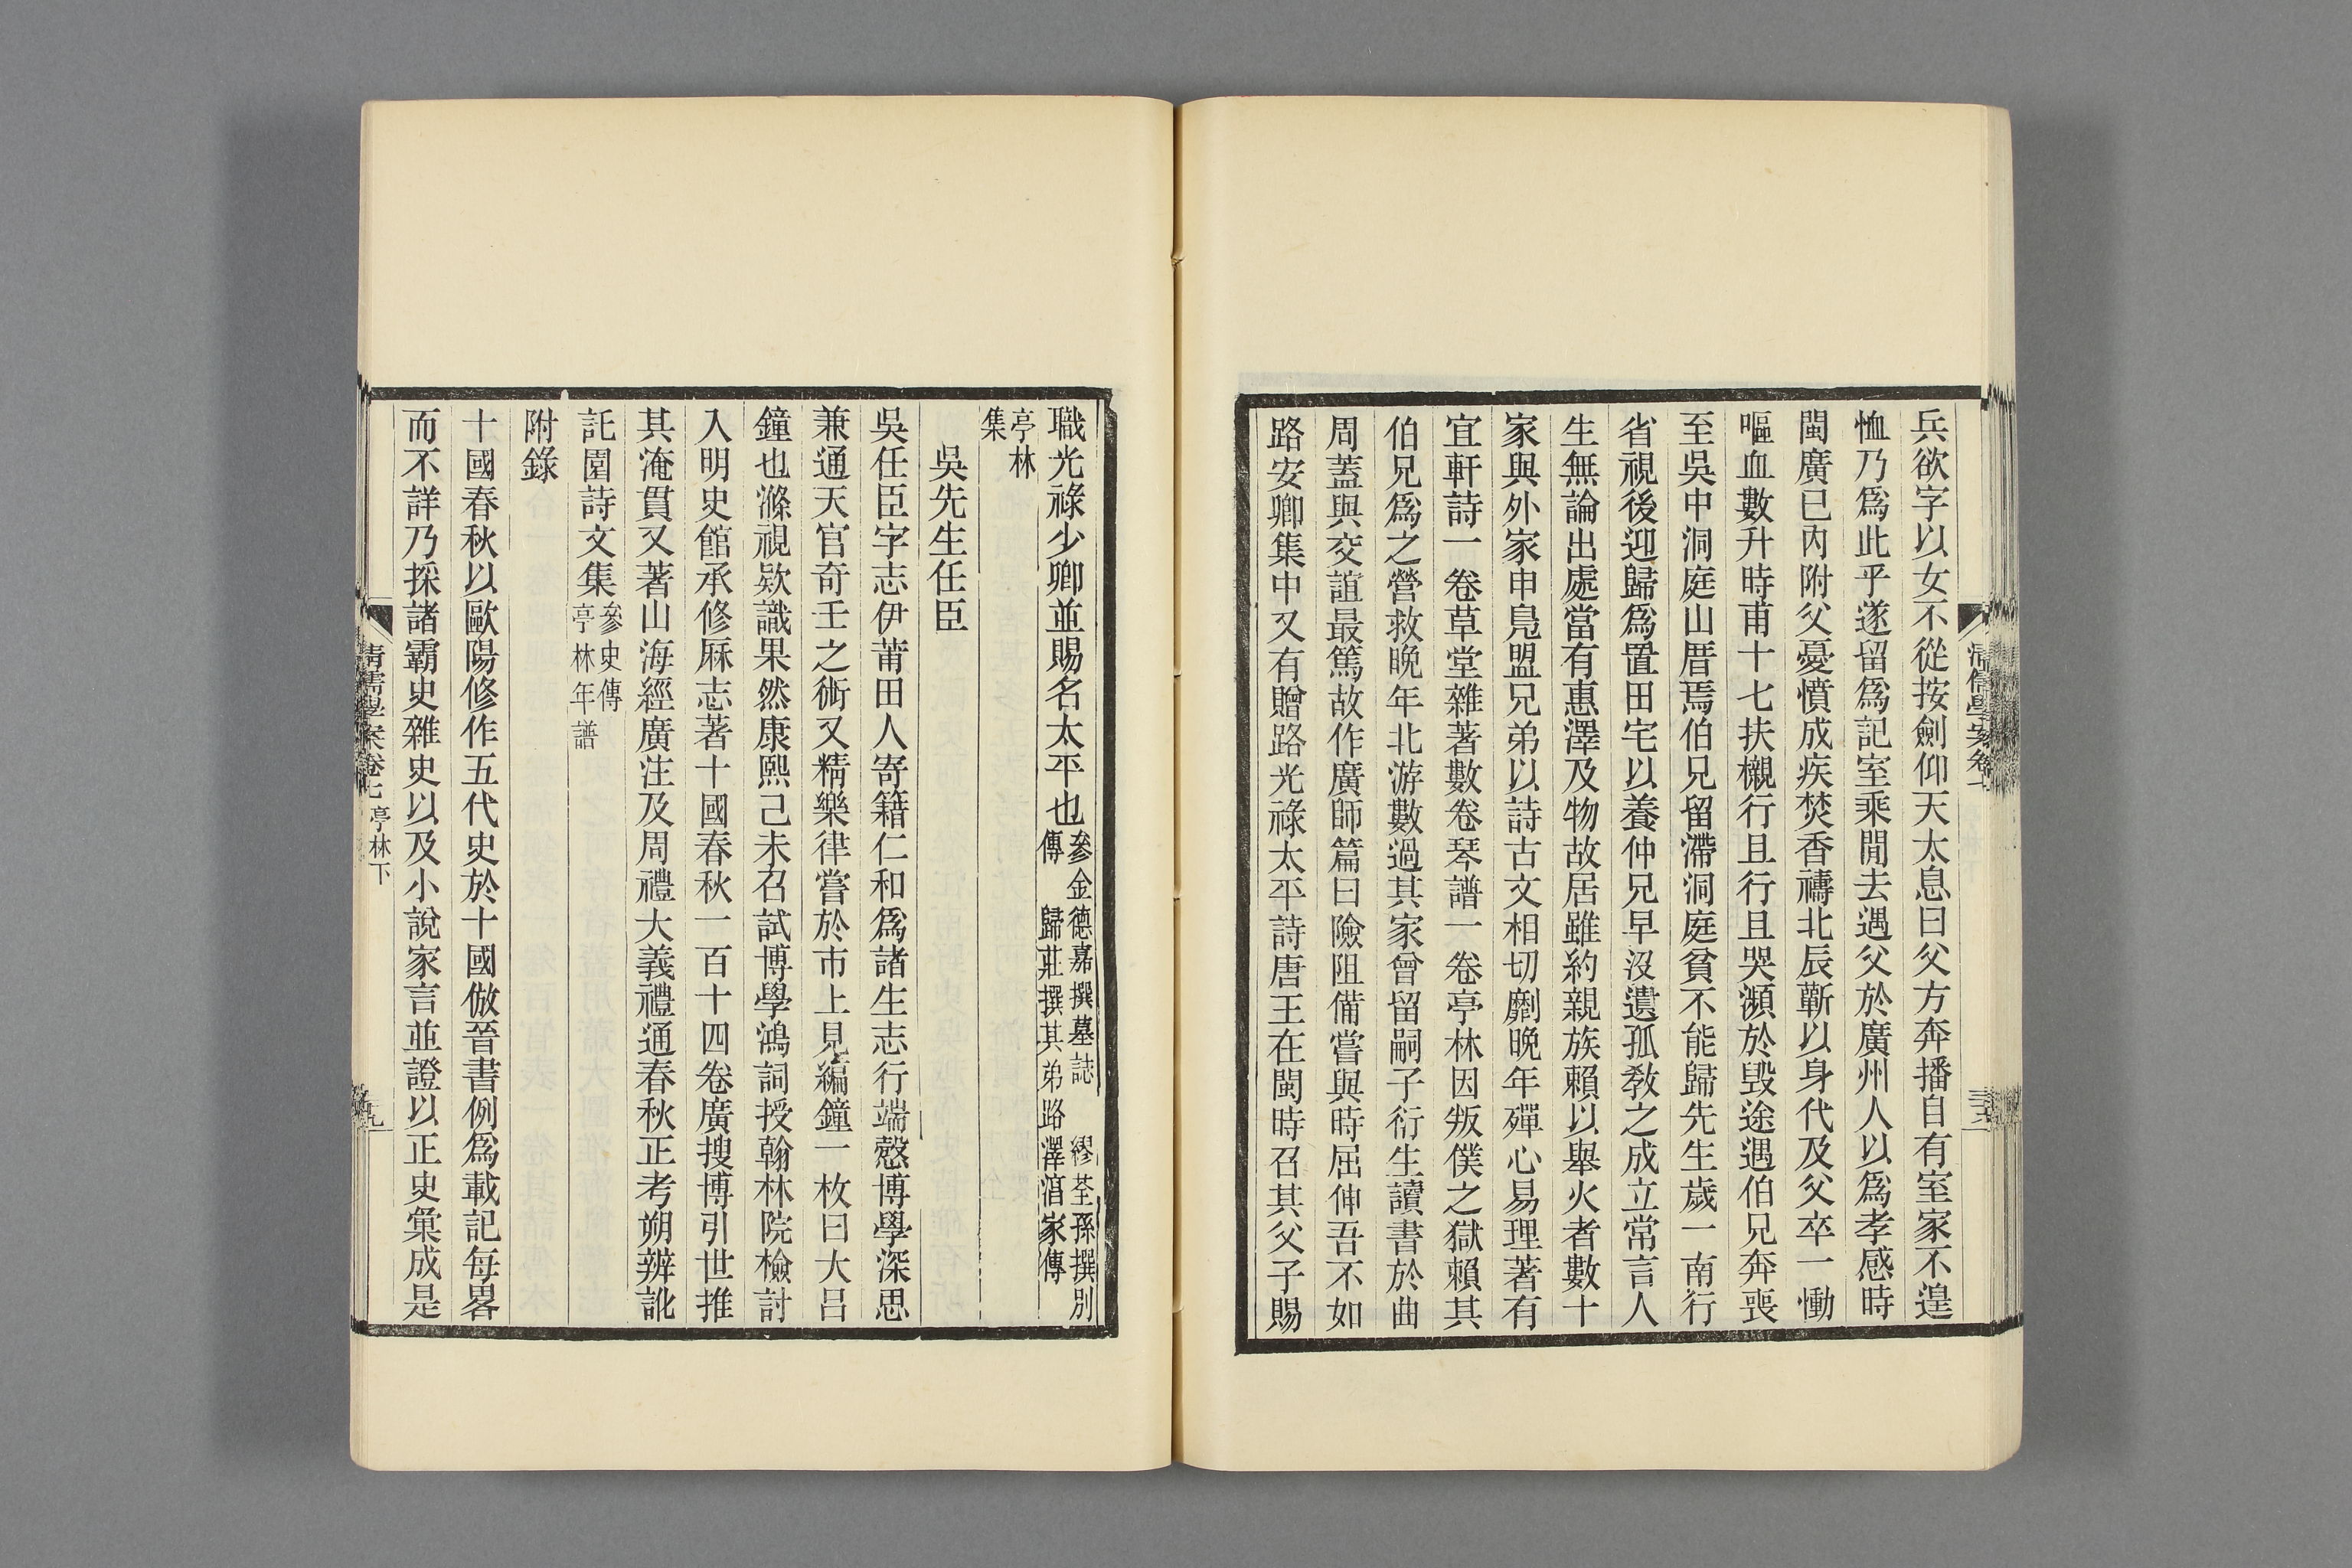 兵欲字以女不從按劍仰天太息曰父方奔播自有室家不遑
恤乃爲此乎遂留爲記室乘閒去遇父於廣州人以爲孝感時
閩廣已內附父憂憤成疾焚香禱北辰蘄以身代及父卒一慟
嘔血數升時甫十七扶櫬行且行且哭瀕於毀途遇伯兄奔喪
至吳中洞庭山厝焉伯兄留滯洞庭貧不能歸先生歲一南行
省視後迎歸爲置田宅以養仲兄早沒遺孤敎之成立常言人
生無論出處當有惠澤及物故居雖約親族賴以舉火者數十
家與外家申鳧盟兄弟以詩古文相切劘晚年殫心易理著有
宜軒詩一卷草堂雜著數卷琴譜一卷亭林因叛僕之獄賴其
伯兄爲之營救晚年北游數過其家曾留嗣子衍生讀書於曲
周蓋與交誼最篤故作廣師篇曰險阻備嘗與時屈伸吾不如
路安卿集中又有贈路光祿太平詩唐王在閩時召其父子賜
職光祿少卿並賜名太平也參金德嘉撰墓誌　繆荃孫撰別
傳　歸莊撰其弟路澤溶家傳
亭林
集
吳先生任臣
吳任臣字志伊莆田人寄籍仁和爲諸生志行端慤博學深思
兼通天官奇壬之術又精樂律嘗於市上見編鐘一枚曰大呂
鐘也滌視欵識果然康熙己未召試博學鴻詞授翰林院檢討
入明史館承修厤志著十國春秋一百十四卷廣搜博引世推
其淹貫又著山海經廣注及周禮大義禮通春秋正考朔辨訛
託園詩文集參史傳
亭林年譜
附錄
十國春秋以歐陽修作五代史於十國倣晉書例爲載記每畧
而不詳乃採諸霸史雜史以及小說家言並證以正史彙成是
清儒學案卷七 亭林下